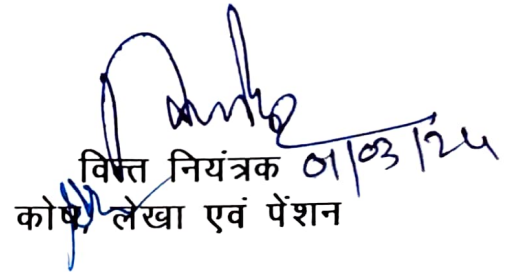 वित्त नियंत्रक 01/03/24
कोष, लेखा एवं पेंशन